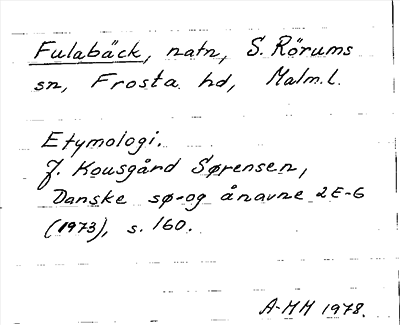 Fulabäck, natn, S. Rörums
sn, Frosta hd, Malm.l.
Etymologi.
J. Kousgård Sørensen,
Danske sø-og ånavne 2E-G
(1973), s. 160.
A-MH 1978.